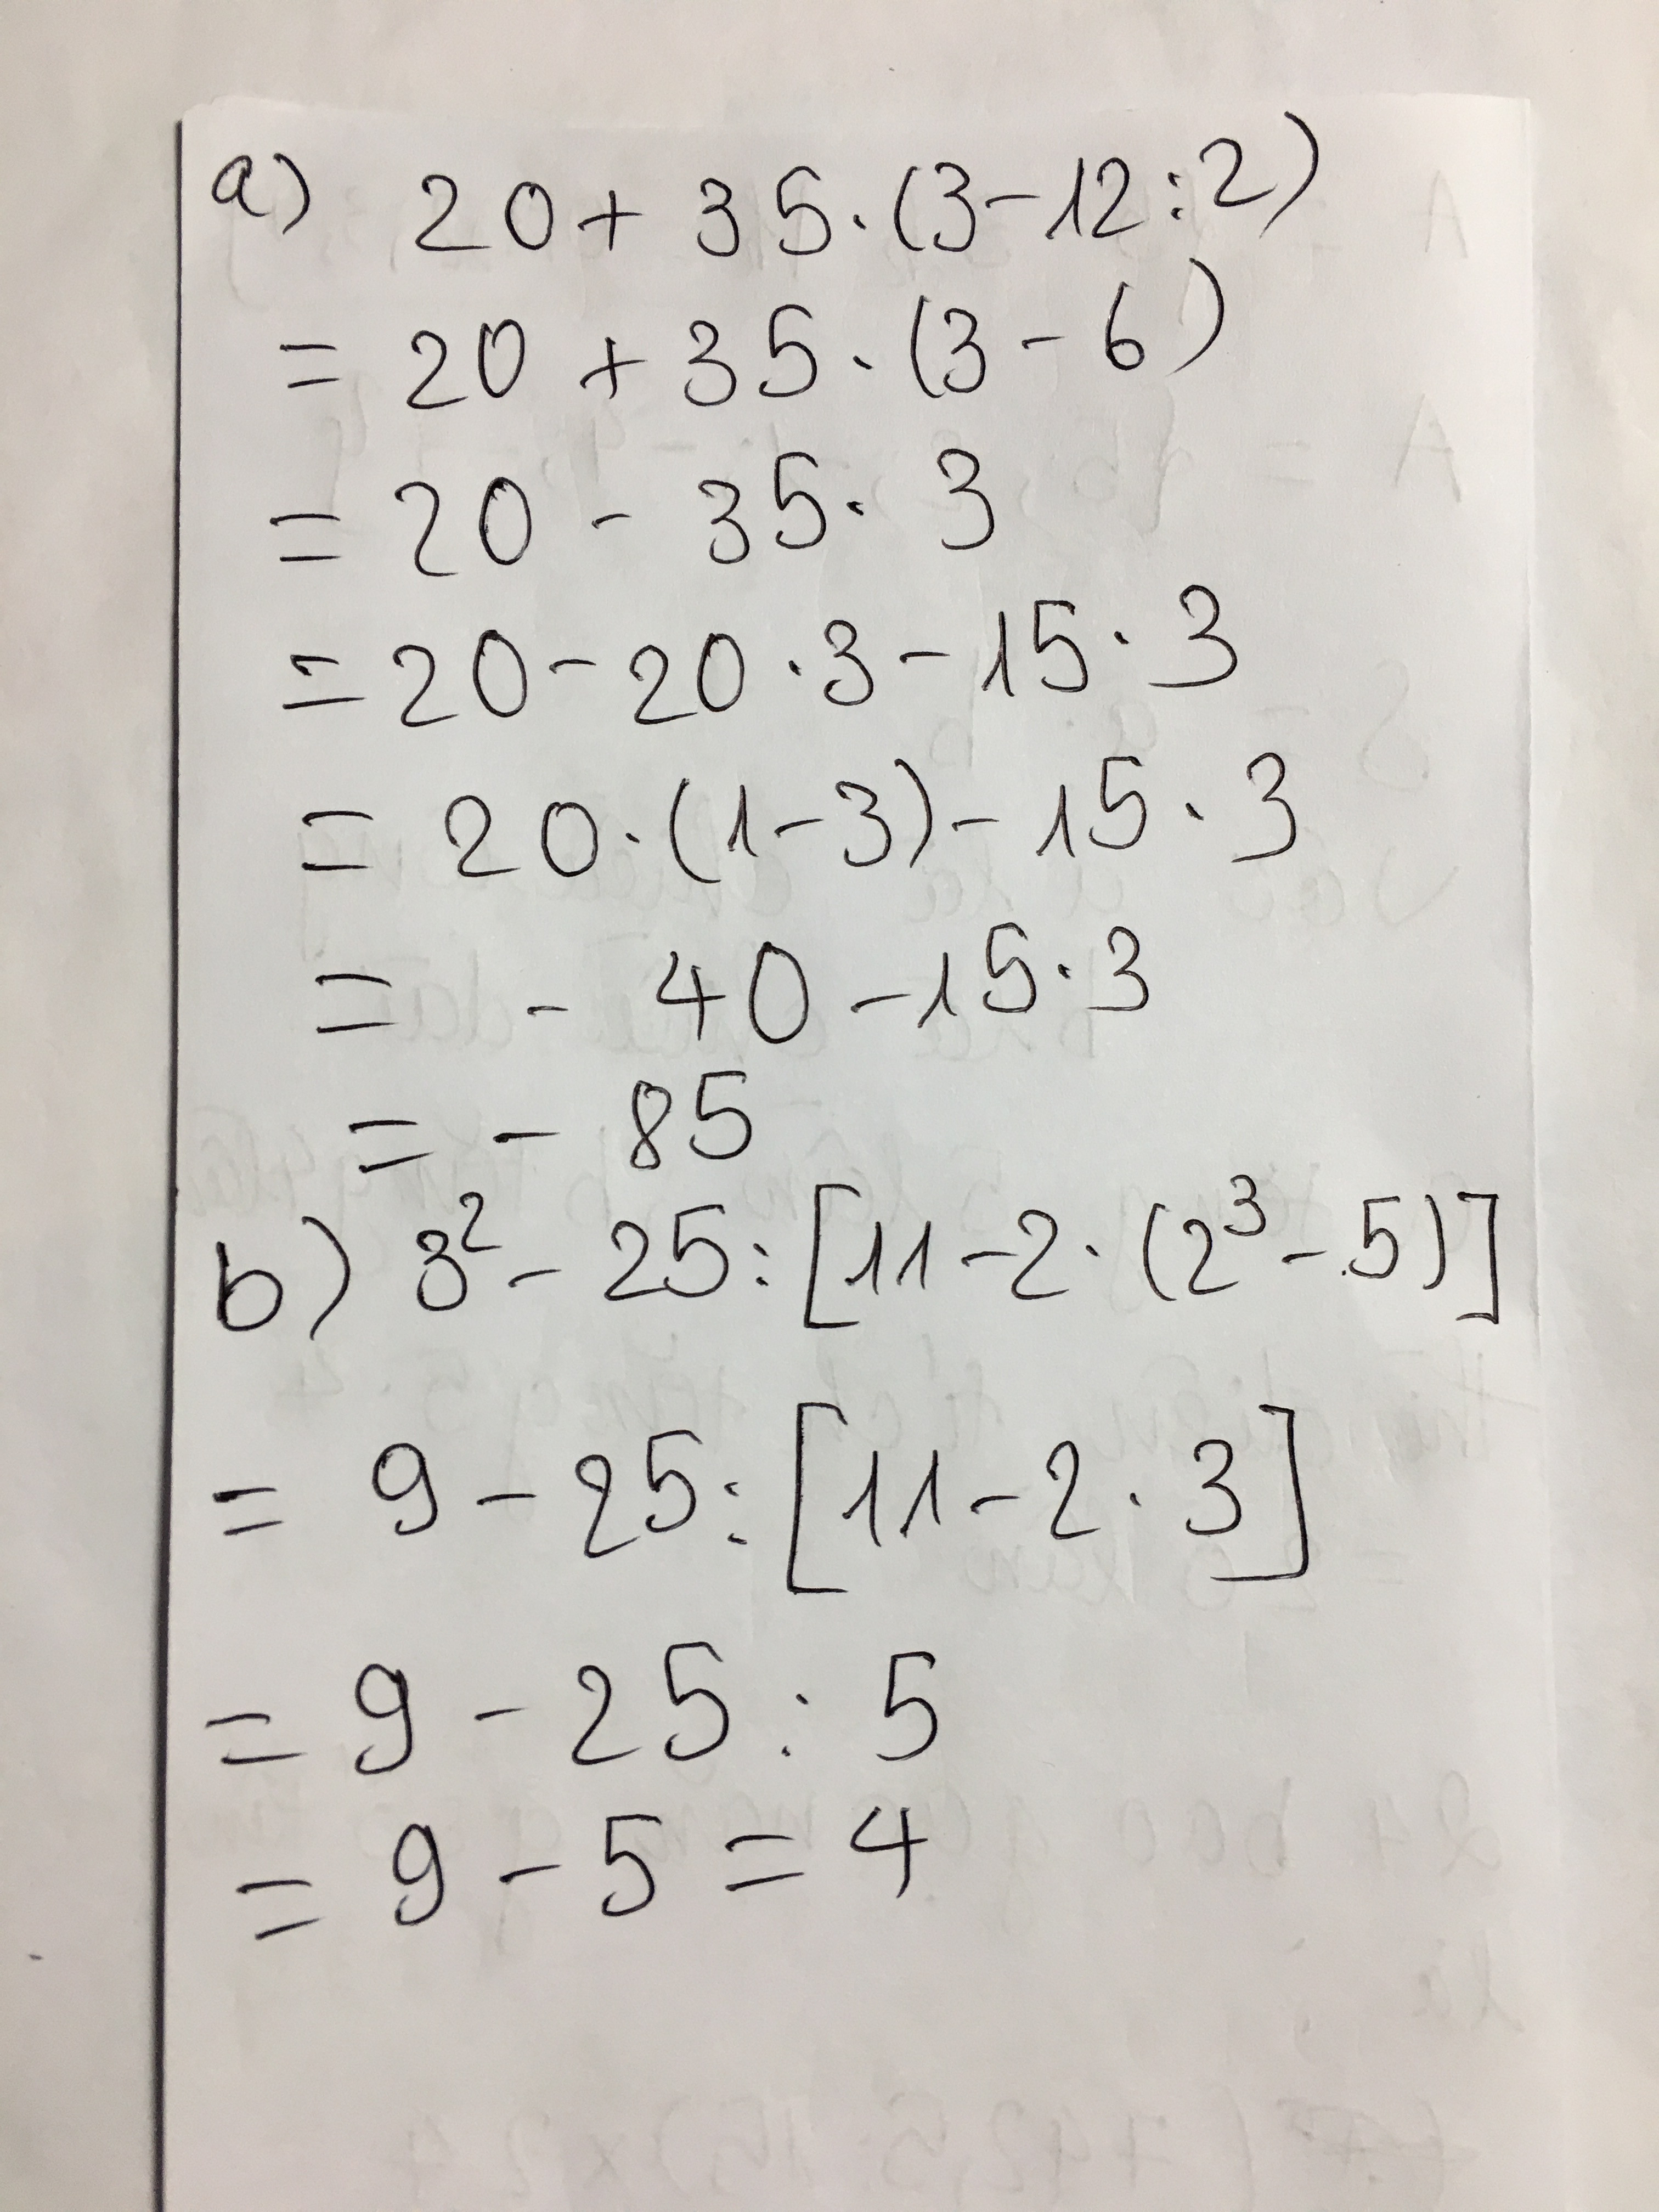 a) 20 + 35 . (3 - 12 : 2)
= 20 + 35 . (3 - 6)
= 20 - 35 . 3
= 20 - 20 . 3 - 15 . 3
= 20 . (1 - 3) - 15 . 3
= - 40 - 15 . 3
= - 85
b) 3² - 25 : [11 - 2 . (2³ - 5)]
= 9 - 25 : [11 - 2 . 3]
= 9 - 25 : 5
= 9 - 5 = 4